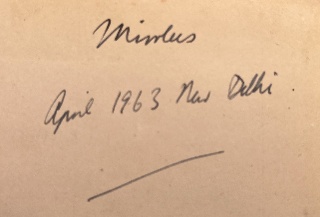 Mirrlees
April 1963 New Delhi.